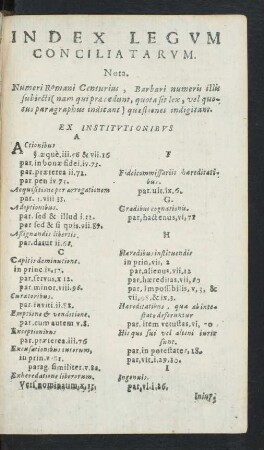 INDEX LEGVM
CONCILIATARVM.
Nota.
Numeri Romani Centurias, Barbari numeris illis
subiecti (nam qui præcedunt, quota sit lex, vel quo-
tus paragraphus indicant) quæstiones indigitant.
EX INSTITVTIONIBVS
A
Actionibus
§.æquè.iii.68 & vii.16
par.in bonæ fidei.iv.75.
par.præterea ii.72.
par pen iv.71.
Acquisitione per arrogationem
par. 1.viii 33.
Adoptionibus.
par sed & illud i.21.
par sed & si quis.vii.89.
Assignandis libertis.
par.datur ii.68.
C
Capitis deminutione.
in princ.iv.17.
par.servus,x 12.
par.minor.viii.96.
Curatoribus.
par.inviti ii.82.
Emptione & venditione.
par.cum autem v.8.
Exceptionibus
par.præterea.iii.76
Excusationibus tutorum,
in prin.v.81.
parag.similiter.v.82.
Exheredatione liberorum,
F
Fideicommissariis hereditati-
bus.
par.ult.ix.6.
G.
Gradibus cognationis.
par,hactenus,vi,78
H
Hæredibus instituendis
in prin.vii, 2
par,alienus.vii,12
par,hæreditas,vii,80
par,impossibilis,v,3, &
Hæreditatibus, quæ ab intes-
tato deferuntur
par.item vetustas,vi,70
His qui sui vel alieni iuris
sunt.
par.in potestate,18.
par,vit.i.29.30.
I
Ingenuis.
par,vl.i.26.